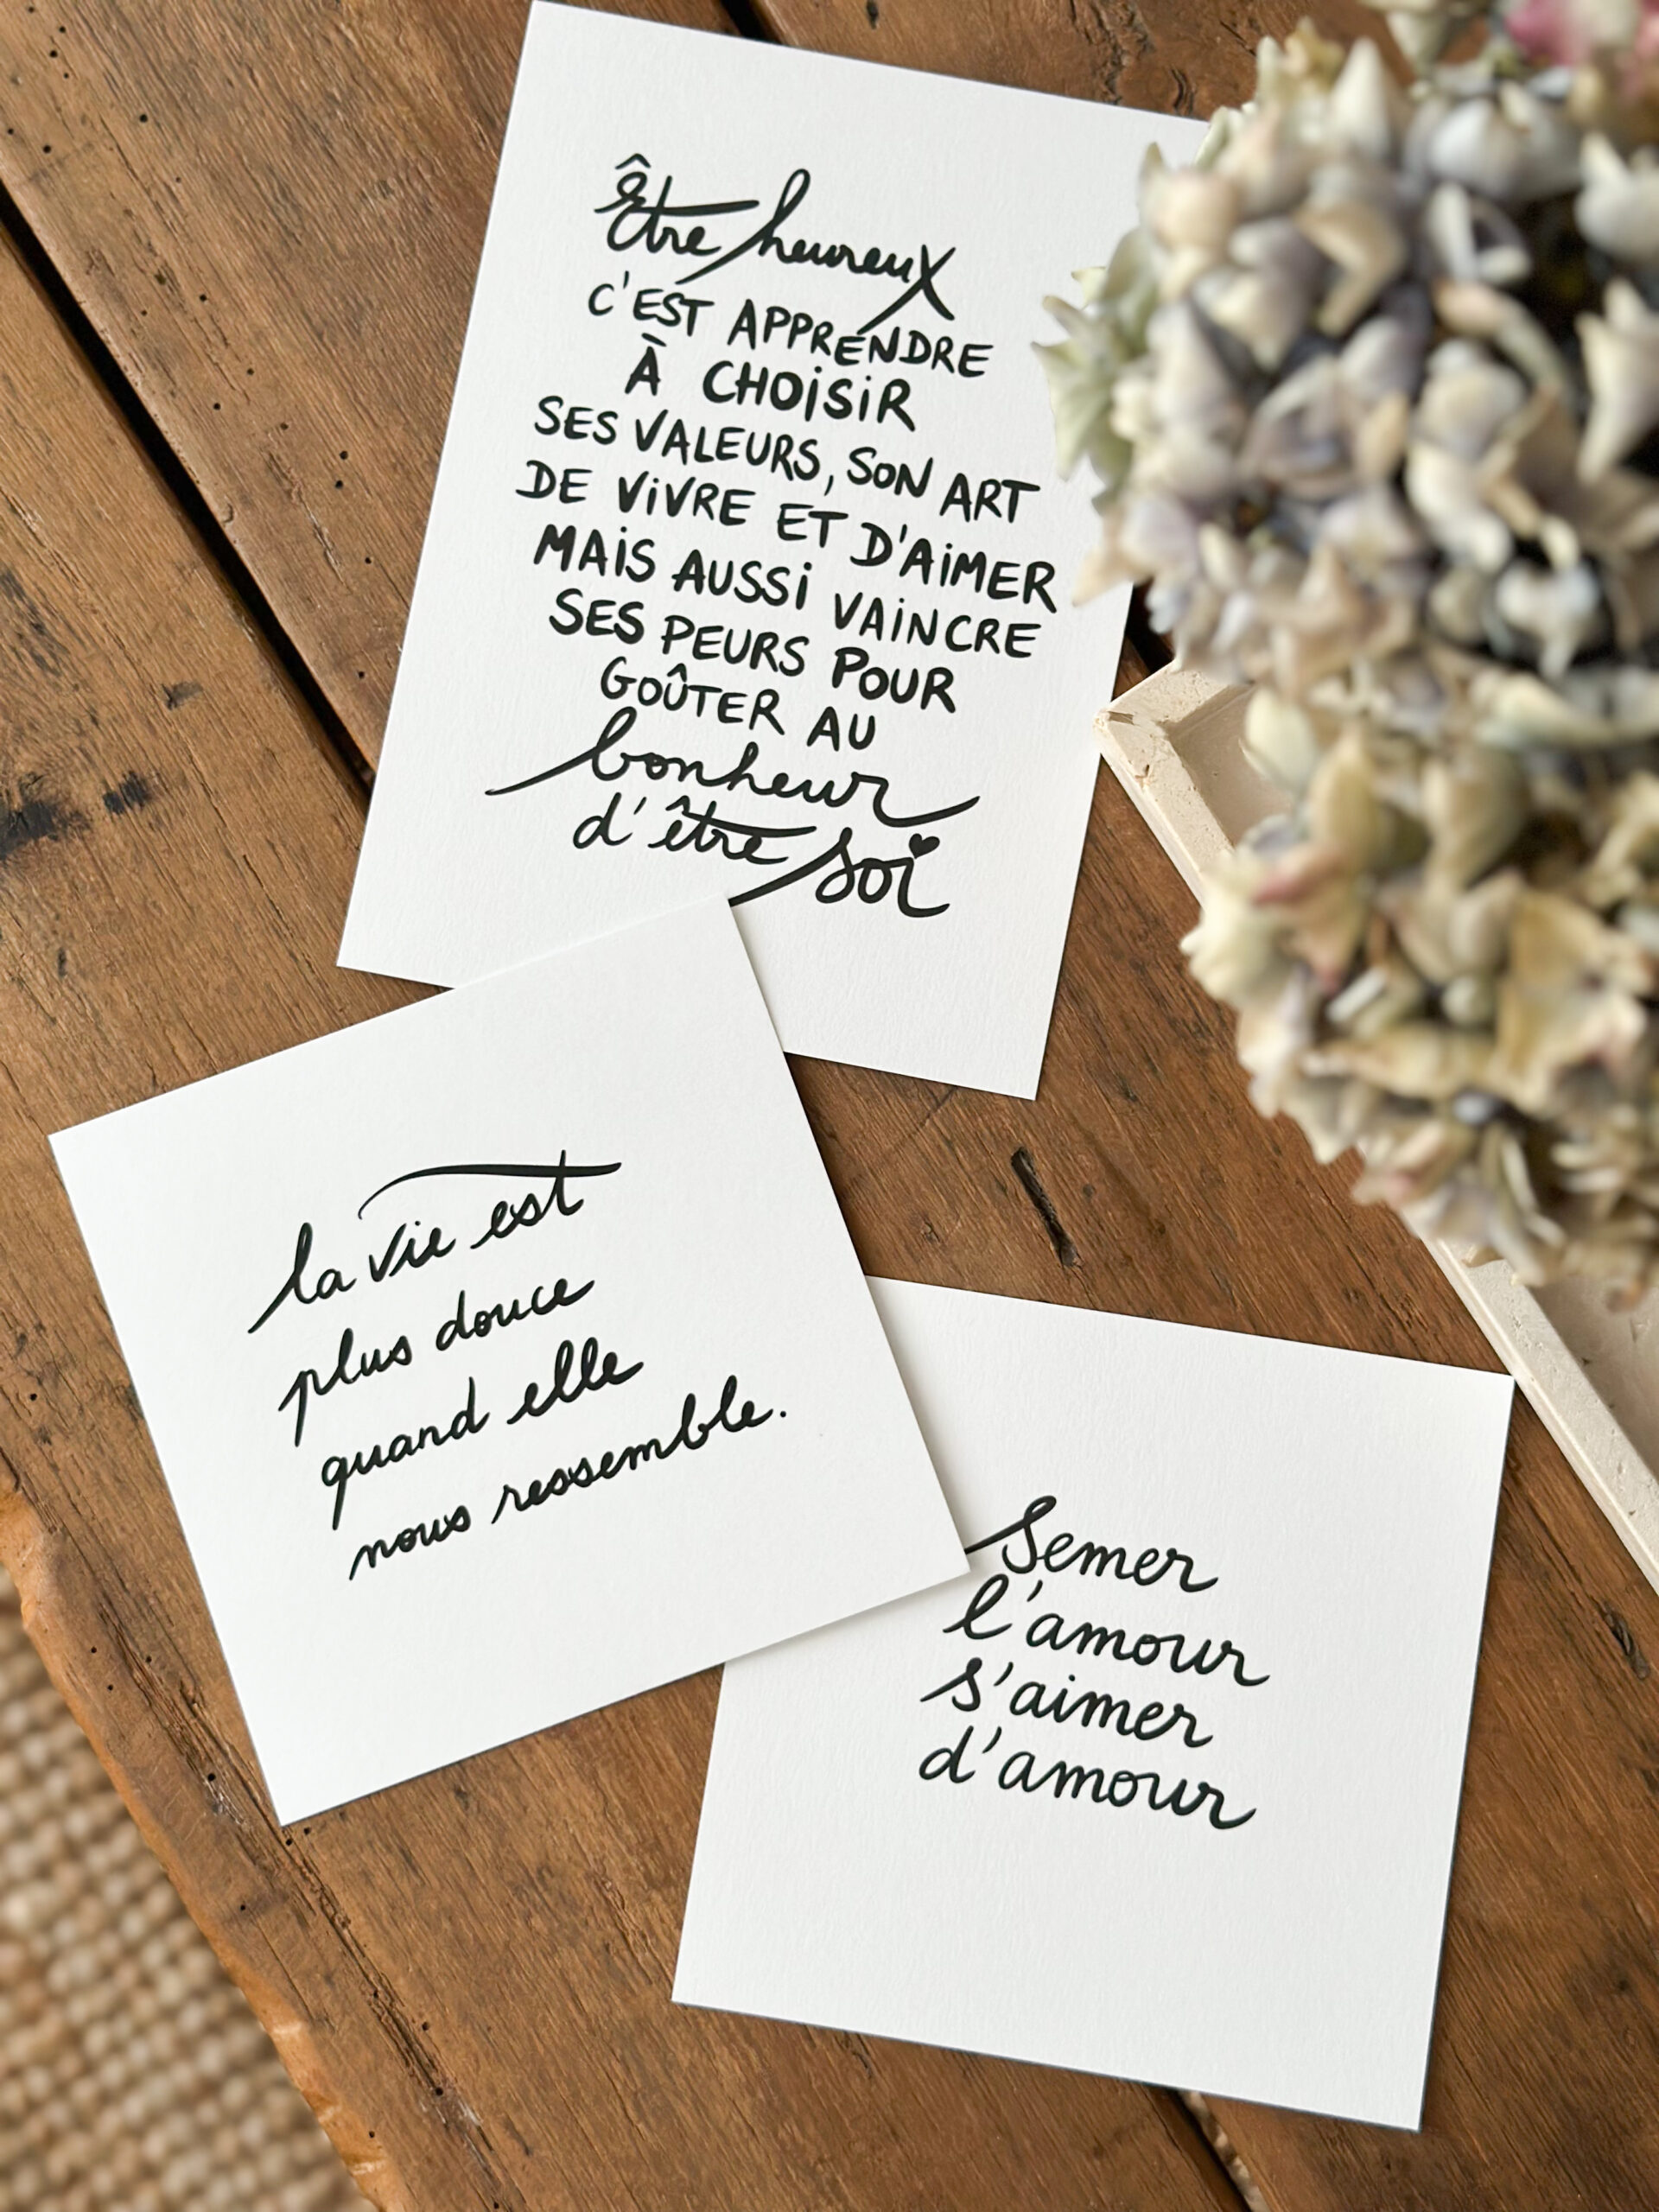 être heureux
C'EST APPRENDRE
À CHOiSiR
SES VALEURS, SON ART
DE ViVRE ET D'AiMER
MAiS AUSSi VAiNCRE
SES PEURS POUR
GOÛTER AU
bonheur
d'être soi
la vie est
plus douce
quand elle
nous ressemble.
Semer
l'amour
s'aimer
d'amour